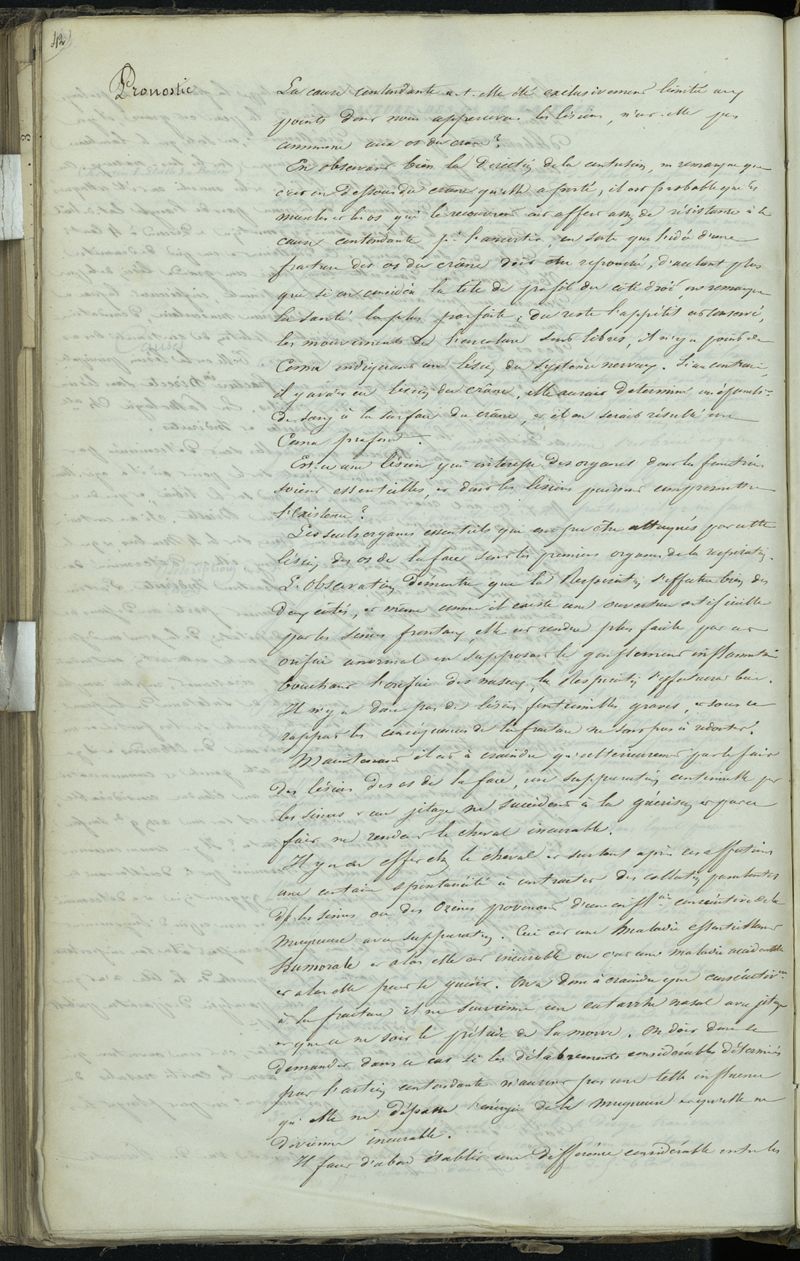 42
Pronostic
La cause contondante a-t-elle été exclusivement limitée aux
points dont nous apercevons les lésions, n'est-elle pas
commune aux os du crâne?
En observant bien la direction de la contusion, on remarque que
c'est en dessous du crâne qu'elle a porté, il est probable que les
muscles et les os qui le recouvrent ont offert assez de résistance à la
cause contondante pr l'amortir, en sorte que l'idée d'une
fracture des os du crâne doit être repoussée, d'autant plus
que si on considère la tête de profil du côté droit, on remarque
la santé la plus parfaite; du reste l'appétit est conservé,
les mouvements de l'encolure sont libres, il n'y a point de
Coma indiquant une lésion du système nerveux. Si au contraire
il y avait eu lésion du crâne, elle aurait déterminé un épancht
de sang à la surface du crâne, et il en serait résulté un
Coma profond.
Est-ce une lésion qui intéresse des organes dont les fonctions
soient essentielles, et dont les lésions puissent compromettre
l'existence?
Les seuls organes essentiels qui ont pu être attaqués par cette
lésion des os de la face sont les premiers organes de la respiration.
L'observation démontre que la Respiration s'effectue bien des
deux côtés, et même comme il existe une ouverture artificielle
par les sinus frontaux, elle est rendue plus facile par cet
orifice anormal en supposant le gonflement inflammatoire
bouchant l'orifice des naseaux, la Respiration s'effectuera bien.
Il n'y a donc pas de lésions fonctionnelles graves, et sous ce
rapport les conséquences de la fracture ne sont pas à redouter.
Maintenant il est à craindre qu'ultérieurement par le fait
des lésions des os de la face, une suppuration continuelle par
les sinus et un jetage ne succèdent à la guérison et par ce
fait ne rendent le cheval incurable.
Il y a en effet chez le cheval et surtout après ces affections
une certaine spontanéité à contracter des collections purulentes
ds les sinus ou des Ozènes provenant d'une infltion consécutive de la
Muqueuse avec suppuration. Ceci est une Maladie essentiellemt
Humorale et alors elle est incurable ou c'est une maladie accidentelle
et alors elle peut se guérir. On a donc à craindre que consécutivmt
à la fracture il ne survienne un catarrhe nasal avec jetage
et que ce ne soit le prélude de la morve. On doit donc se
demander dans ce cas si les délabrements considérables déterminés
par l'action contondante n'auront pas une telle influence
qu'elle ne dépasse l'énergie de la Muqueuse et qu'elle ne
devienne incurable.
Il faut d'abord établir une différence considérable entre les